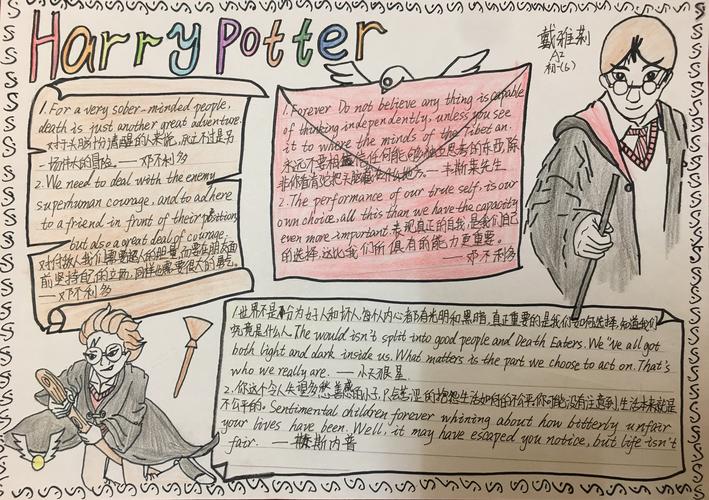 Harry Potter
戴雅莉
A2
初一(6)
1. For a very sober-minded people,
death is just another great adventure.
对于头脑十分清醒的人来说,死亡不过是另
一场伟大的冒险。——邓不利多
2. We need to deal with the enemy
superhuman courage, and to adhere
to a friend in front of their positions,
but also a great deal of courage.
对付敌人我们需要超人的胆量,而要在朋友面
前坚持自己的立场,同样也需要很大的勇气。
——邓不利多
1. Forever Do not believe any thing is capable
of thinking independently, unless you see
it to where the minds of the Tibetan.
永远不要相信任何能够独立思考的东西,除
非你看清它把头脑藏在什么地方。——韦斯莱先生
2. The performance of our true self, is our
own choice, all this than we have the capacity
even more important. 表现真正的自我,是我们自己
的选择,这比我们所俱有的能力更重要。
——邓不利多
1.世界不是分为好人和坏人,每个人内心都有光明和黑暗,真正重要的是我们如何选择,知道我们
究竟是什么人. The would isn't split into good people and Death Eaters. We've all got
both light and dark inside us. What matters is the part we choose to act on. That's
who we really are. ——小天狼星
2. 你这个令人失望多愁善感的小子,只去
的抱怨生活如何的不公平,你可能没有注意到,生活本来就是
不公平的。Sentimental children forever whining about how bitterly unfair
your lives have been. Well, it may have escaped you notice, but life isn't
fair. ——斯内普